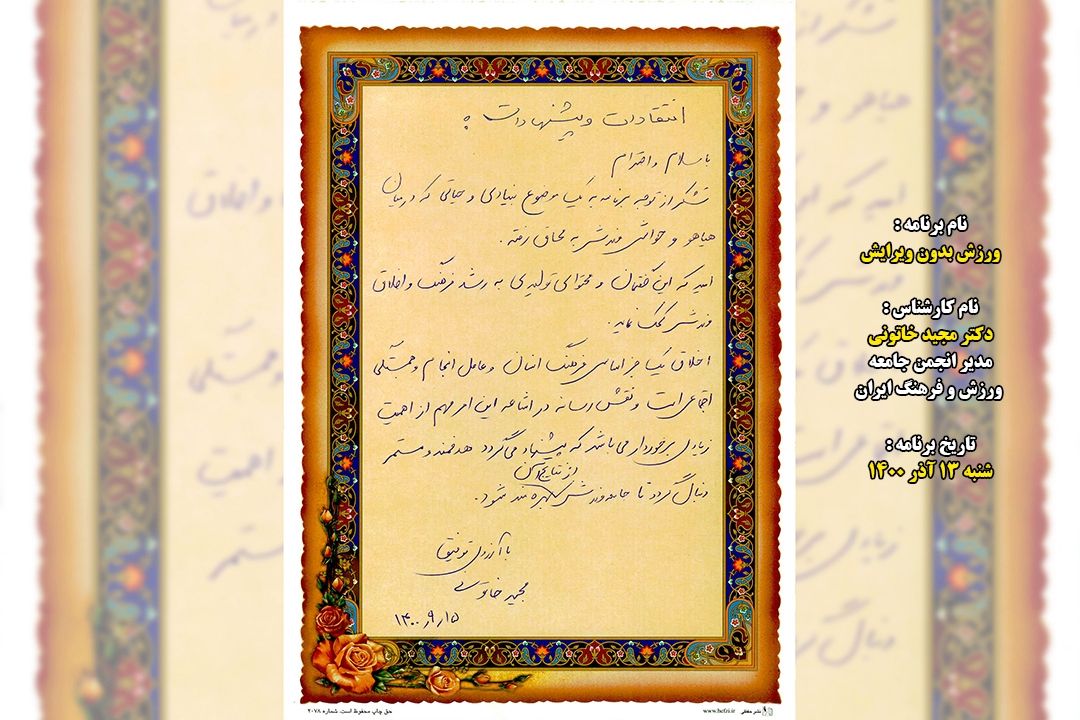 انتقادات و پیشنهادات :
با سلام و احترام
تشکر از توجه برنامه به یک موضوع بنیادی و حیاتی که در میان
هیاهو و حواشی ورزشی به محاق رفته .
امید که این گفتمان و محتوای تولیدی به رشد فرهنگ و اخلاق
ورزشی کمک نماید .
اخلاق یک جز اساسی فرهنگ انسان و عامل انسجام و همبستگی
اجتماعی است و نقش رسانه در اشاعه این امر مهم از اهمیت
زیادی برخوردار می باشد که پیشنهاد می گردد هدفمند و مستمر
دنبال گردد تا جامعه ورزشی از نتایج آن بهره مند شود .
با آرزوی توفیق
مجید خاتونی
۱۴۰۰/۹/۱۵
نام برنامه :
ورزش بدون ویرایش
نام کارشناس :
دکتر مجید خاتونی
مدیر انجمن جامعه
ورزش و فرهنگ ایران
تاریخ برنامه :
شنبه ۱۳ آذر ۱۴۰۰
حق چاپ محفوظ است. شماره ۲۰۷۸
www.hefzi.ir